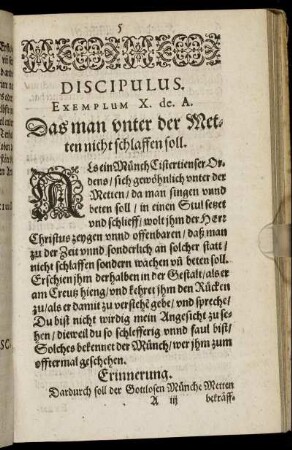 5
DISCIPULUS.
EXEMPLUM X. de. A.
Das man vnter der Met-
ten nicht schlaffen soll.
ALs ein Münch Cistertienser Or-
dens / sich gewöhnlich vnter der
Metten / da man singen vnnd
beten soll / in einen Stul setzet
vnd schlieff / wolt jhm der Herr
Christus zeygen vnnd offenbaren / daß man
zu der Zeit vnnd sonderlich an solcher statt /
nicht schlaffen sondern wachen vñ beten soll.
Erschien jhm derhalben in der Gestalt / als er
am Creutz hieng / vnd kehret jhm den Rücken
zu / als er damit zu verstehẽ gebe / vnd spreche /
Du bist nicht wirdig mein Angesicht zu se-
hen / dieweil du so schlefferig vnnd faul bist /
Solches bekennet der Münch / wer jhm zum
offtermal geschehen.
Erinnerung.
Dardurch soll der Gottlosen Münche Metten
A iij bekräff-